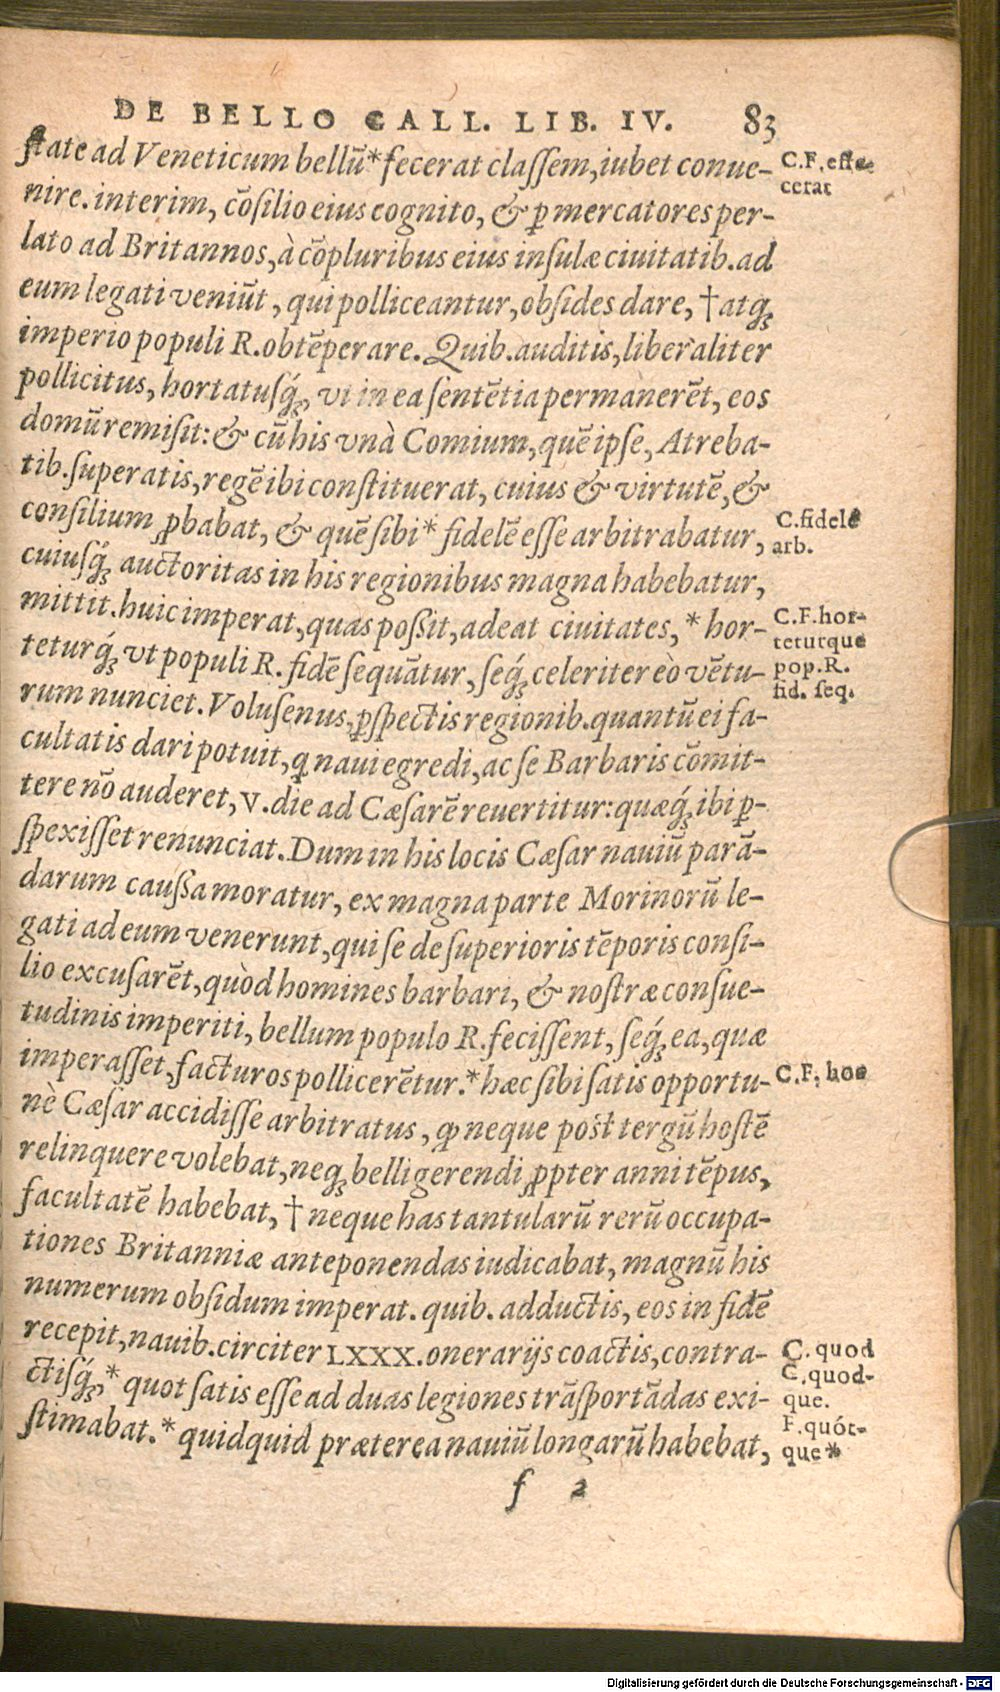 DE BELLO GALL. LIB. IV. 83
ſtate ad Veneticum bellũ* fecerat claſſem, iubet conue-
nire. interim, cõſilio eius cognito, & ꝑ mercatores per-
lato ad Britannos, à cõpluribus eius inſulæ ciuitatib. ad
eum legati veniũt, qui polliceantur, obſides dare, † atq;
imperio populi R. obtẽperare. Quib. auditis, liberaliter
pollicitus, hortatuſq́;, vt in ea ſentẽtia permanerẽt, eos
domũ remiſit: & cũ his vnà Comium, quẽ ipſe, Atreba-
tib. ſuperatis, regẽ ibi conſtituerat, cuius & virtutẽ, &
conſilium ꝓbabat, & quẽ ſibi* fidelẽ eſſe arbitrabatur,
cuiuſq́; auctoritas in his regionibus magna habebatur,
mittit. huic imperat, quas poßit, adeat ciuitates, * hor-
teturq́; vt populi R. fidẽ ſequãtur, ſeq́; celeriter eò vẽtu-
rum nunciet. Voluſenus, ꝑſpectis regionib. quantũ ei fa-
cultatis dari potuit, q nauı egredi, ac ſe Barbaris cõmit-
tere nõ auderet, V. die ad Cæſarẽ reuertitur: quæq́; ibi ꝑ-
ſpexiſſet renunciat. Dum in his locis Cæſar nauiũ parã-
darum caußa moratur, ex magna parte Morinorũ le-
gati ad eum venerunt, qui ſe de ſuperioris tẽporis conſi-
lio excuſarẽt, quòd homines barbari, & noſtræ conſue-
tudinis imperiti, bellum populo R. feciſſent, ſeq́; ea, quæ
imperaſſet, facturos pollicerẽtur. * hæc ſibi ſatis opportu-
nè Cæſar accidiſſe arbitratus, ꝙ neque poſt tergũ hoſtẽ
relinquere volebat, neq; belli gerendi ꝓpter anni tẽpus,
facultatẽ habebat, † neque has tantularũ rerũ occupa-
tiones Britanniæ anteponendas iudicabat, magnũ his
numerum obſidum imperat. quib. adductis, eos in fidẽ
recepit, nauib. circiter LXXX. onerarijs coactis, contra-
ctiſq́;, * quot ſatis eſſe ad duas legiones trãſportãdas exi-
ſtimabat. * quidquid præterea nauiũ longarũ habebat,
f 2
C.F. effe-
cerat
C. fidelẽ
arb.
C.F. hor-
teturque
pop. R.
fid. ſeq.
C.F. hoc
C. quod
C. quod-
que.
F. quót-
que*
Digitalisierung gefördert durch die Deutsche Forschungsgemeinschaft - DFG